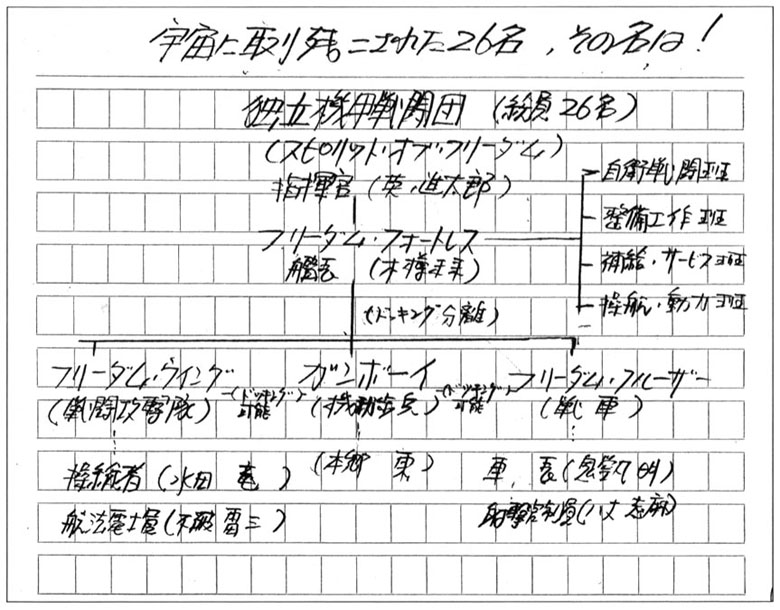 宇宙に取り残こされた26名，その名は！
独立機甲戦闘団 (総員26名)
(スピリット・オブ・フリーダム)
指揮官 (英、進太郎)
自衛戦闘班
整備工作班
フリーダム・フォートレス
艦長
補給・サービス班
操航・動力班
(ドッキング分離)
フリーダム・ウイング ガンボーイ フリーダム・クルーザー
(戦闘攻撃隊) (ドッキング可能) (機動歩兵) (ドッキング可能) (戦車)
操縦者 (水田 竜) (本郷 東) 車、長
航法電士員 (不破雷三) 射撃管制員 (八丈志麻)